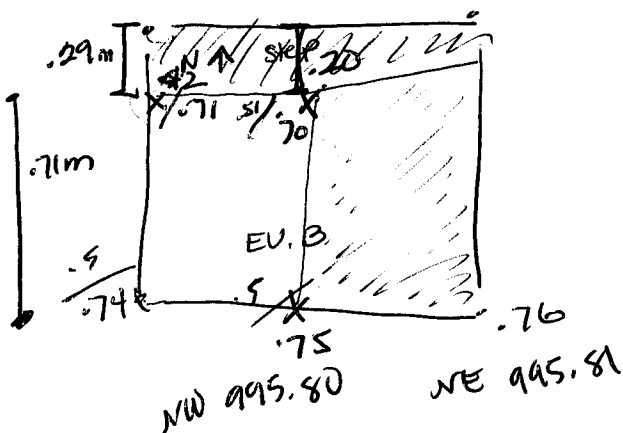 .29m
N
step
.20
.71
.70
.71m
EU. 3
.5
.74
.5
.75
.76
NW 995.80
NE 995.81